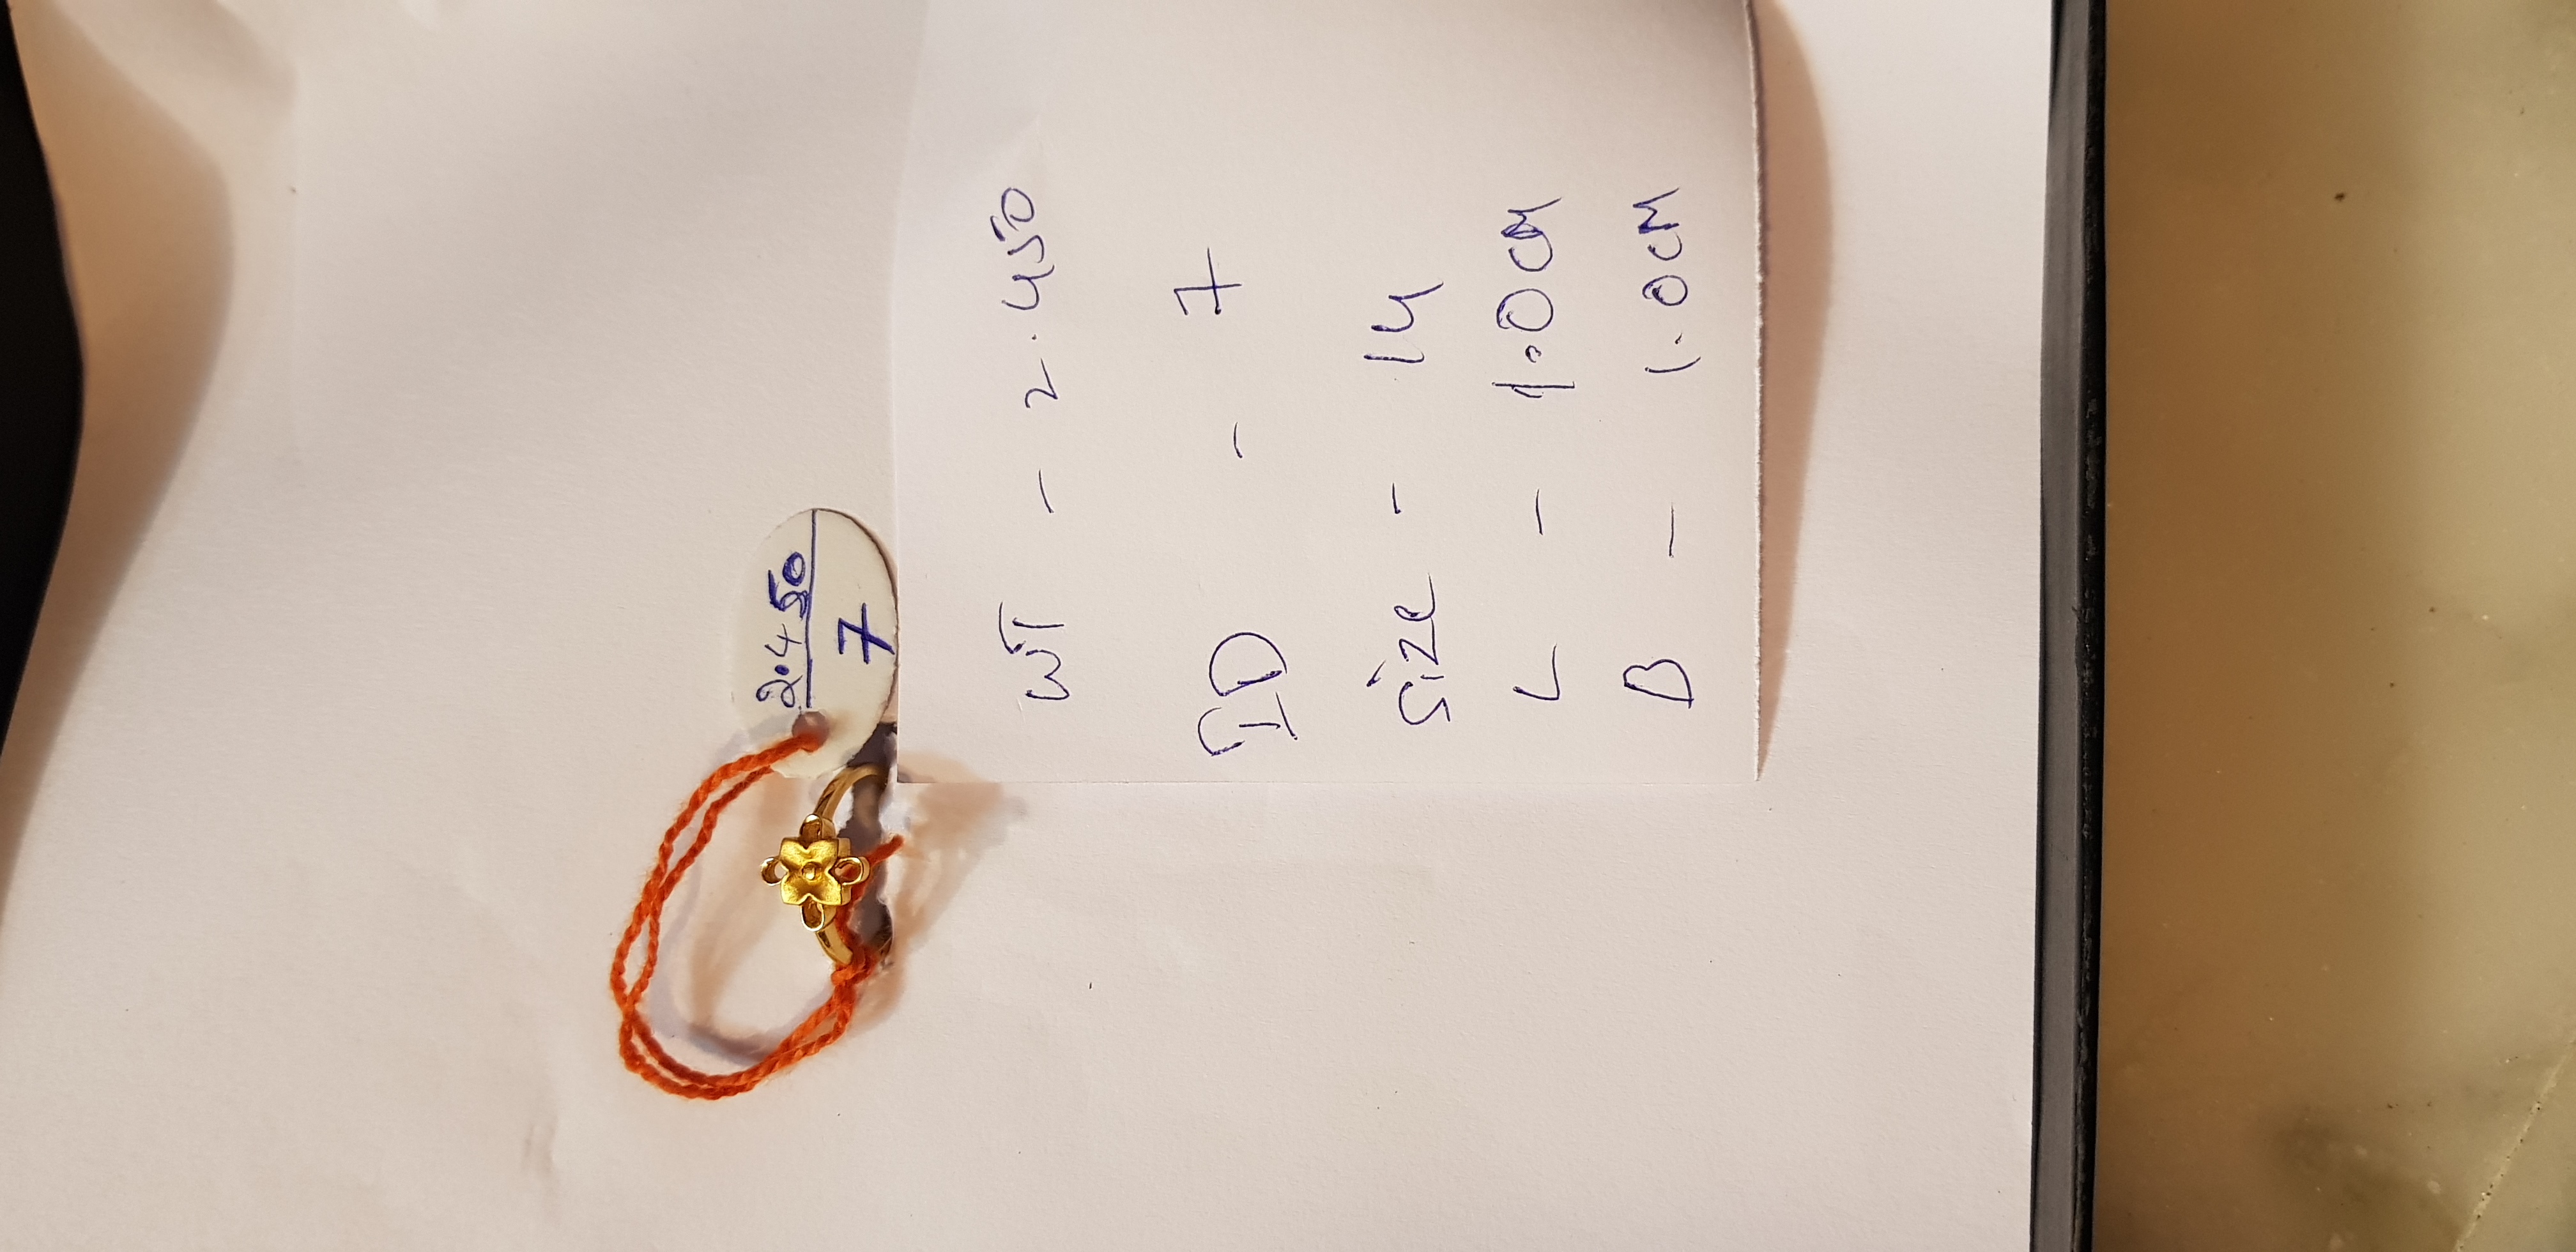 2.450
7
WT - 2.450
ID - 7
Size - 14
L - 1.0CM
B - 1.0CM